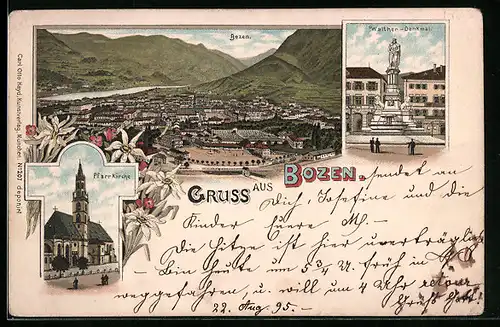 Bozen.
Walther-Denkmal.
Pfarrkirche
Carl Otto Hayd, Kunstverlag, München. Nº 1207 deponirt
GRUSS AUS BOZEN. sendet an
Dich, Josefine und die
Kinder Euere M–
Die Hitze ist hier unerträglich
– Bin heute um 5 3/4 U. früh in
weggefahren, u. will um 4 Uhr retour
Grüß Gott!
22. Aug 95.–